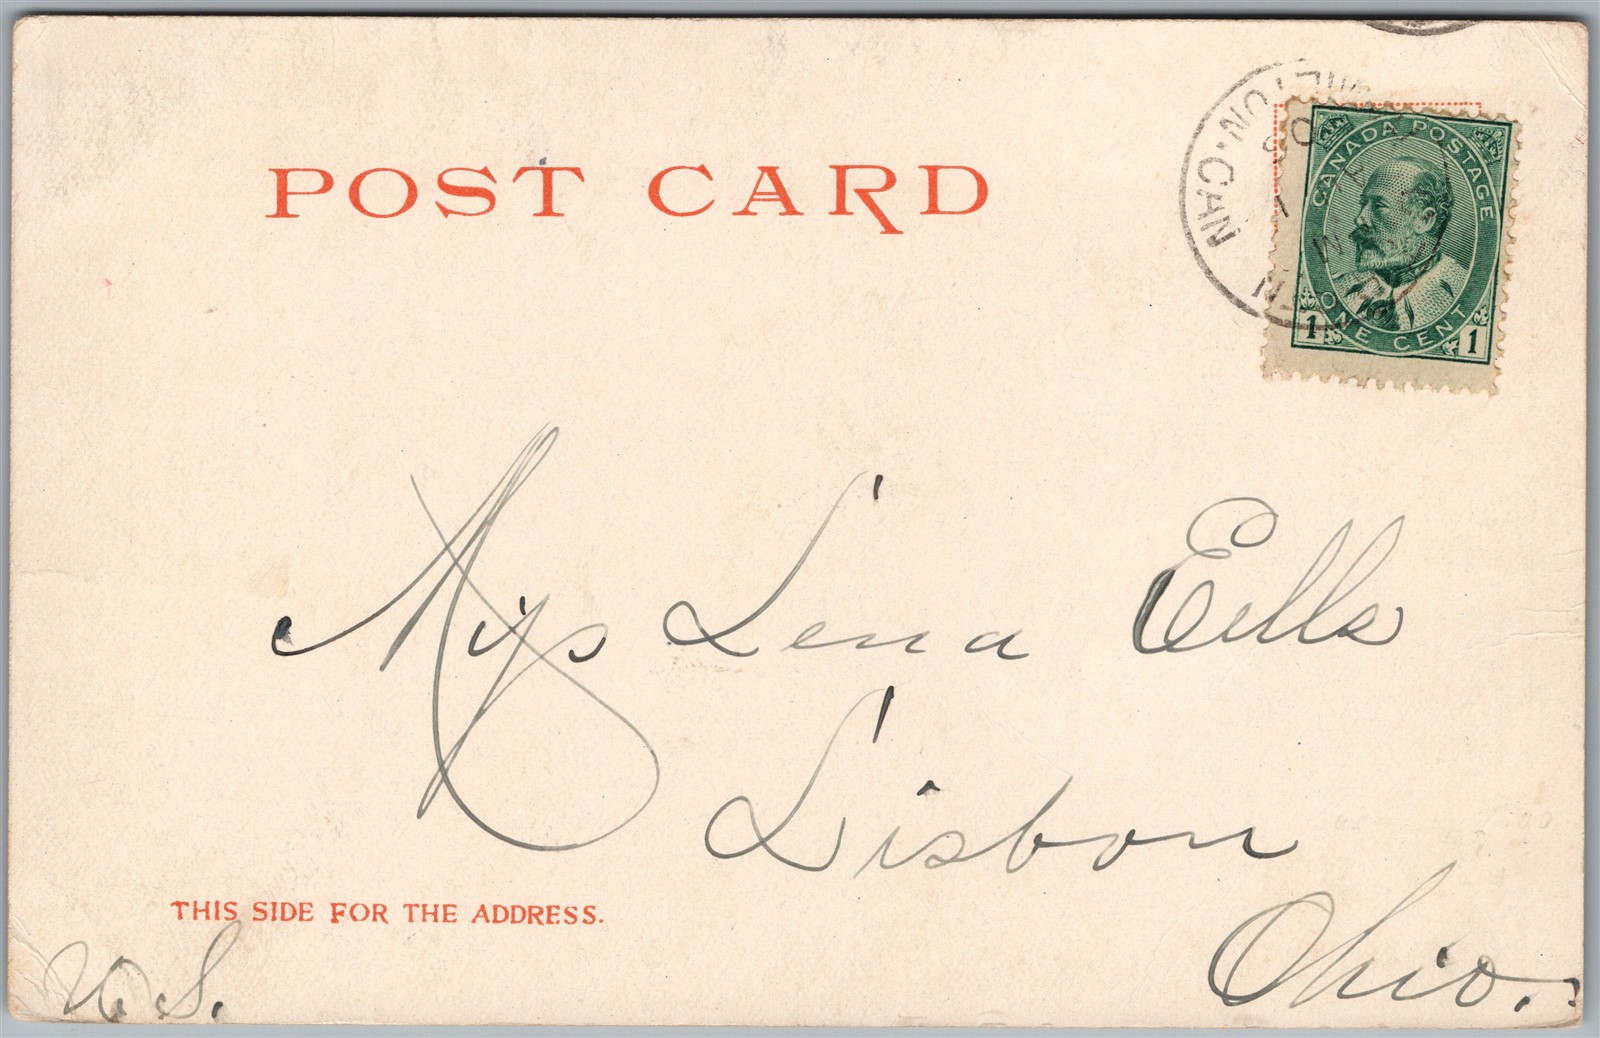 POST CARD
CANADA POSTAGE
ONE CENT
1 1
MILTON. CAN
Miss Lena Eells
Lisbon
Ohio.
THIS SIDE FOR THE ADDRESS.
U.S.